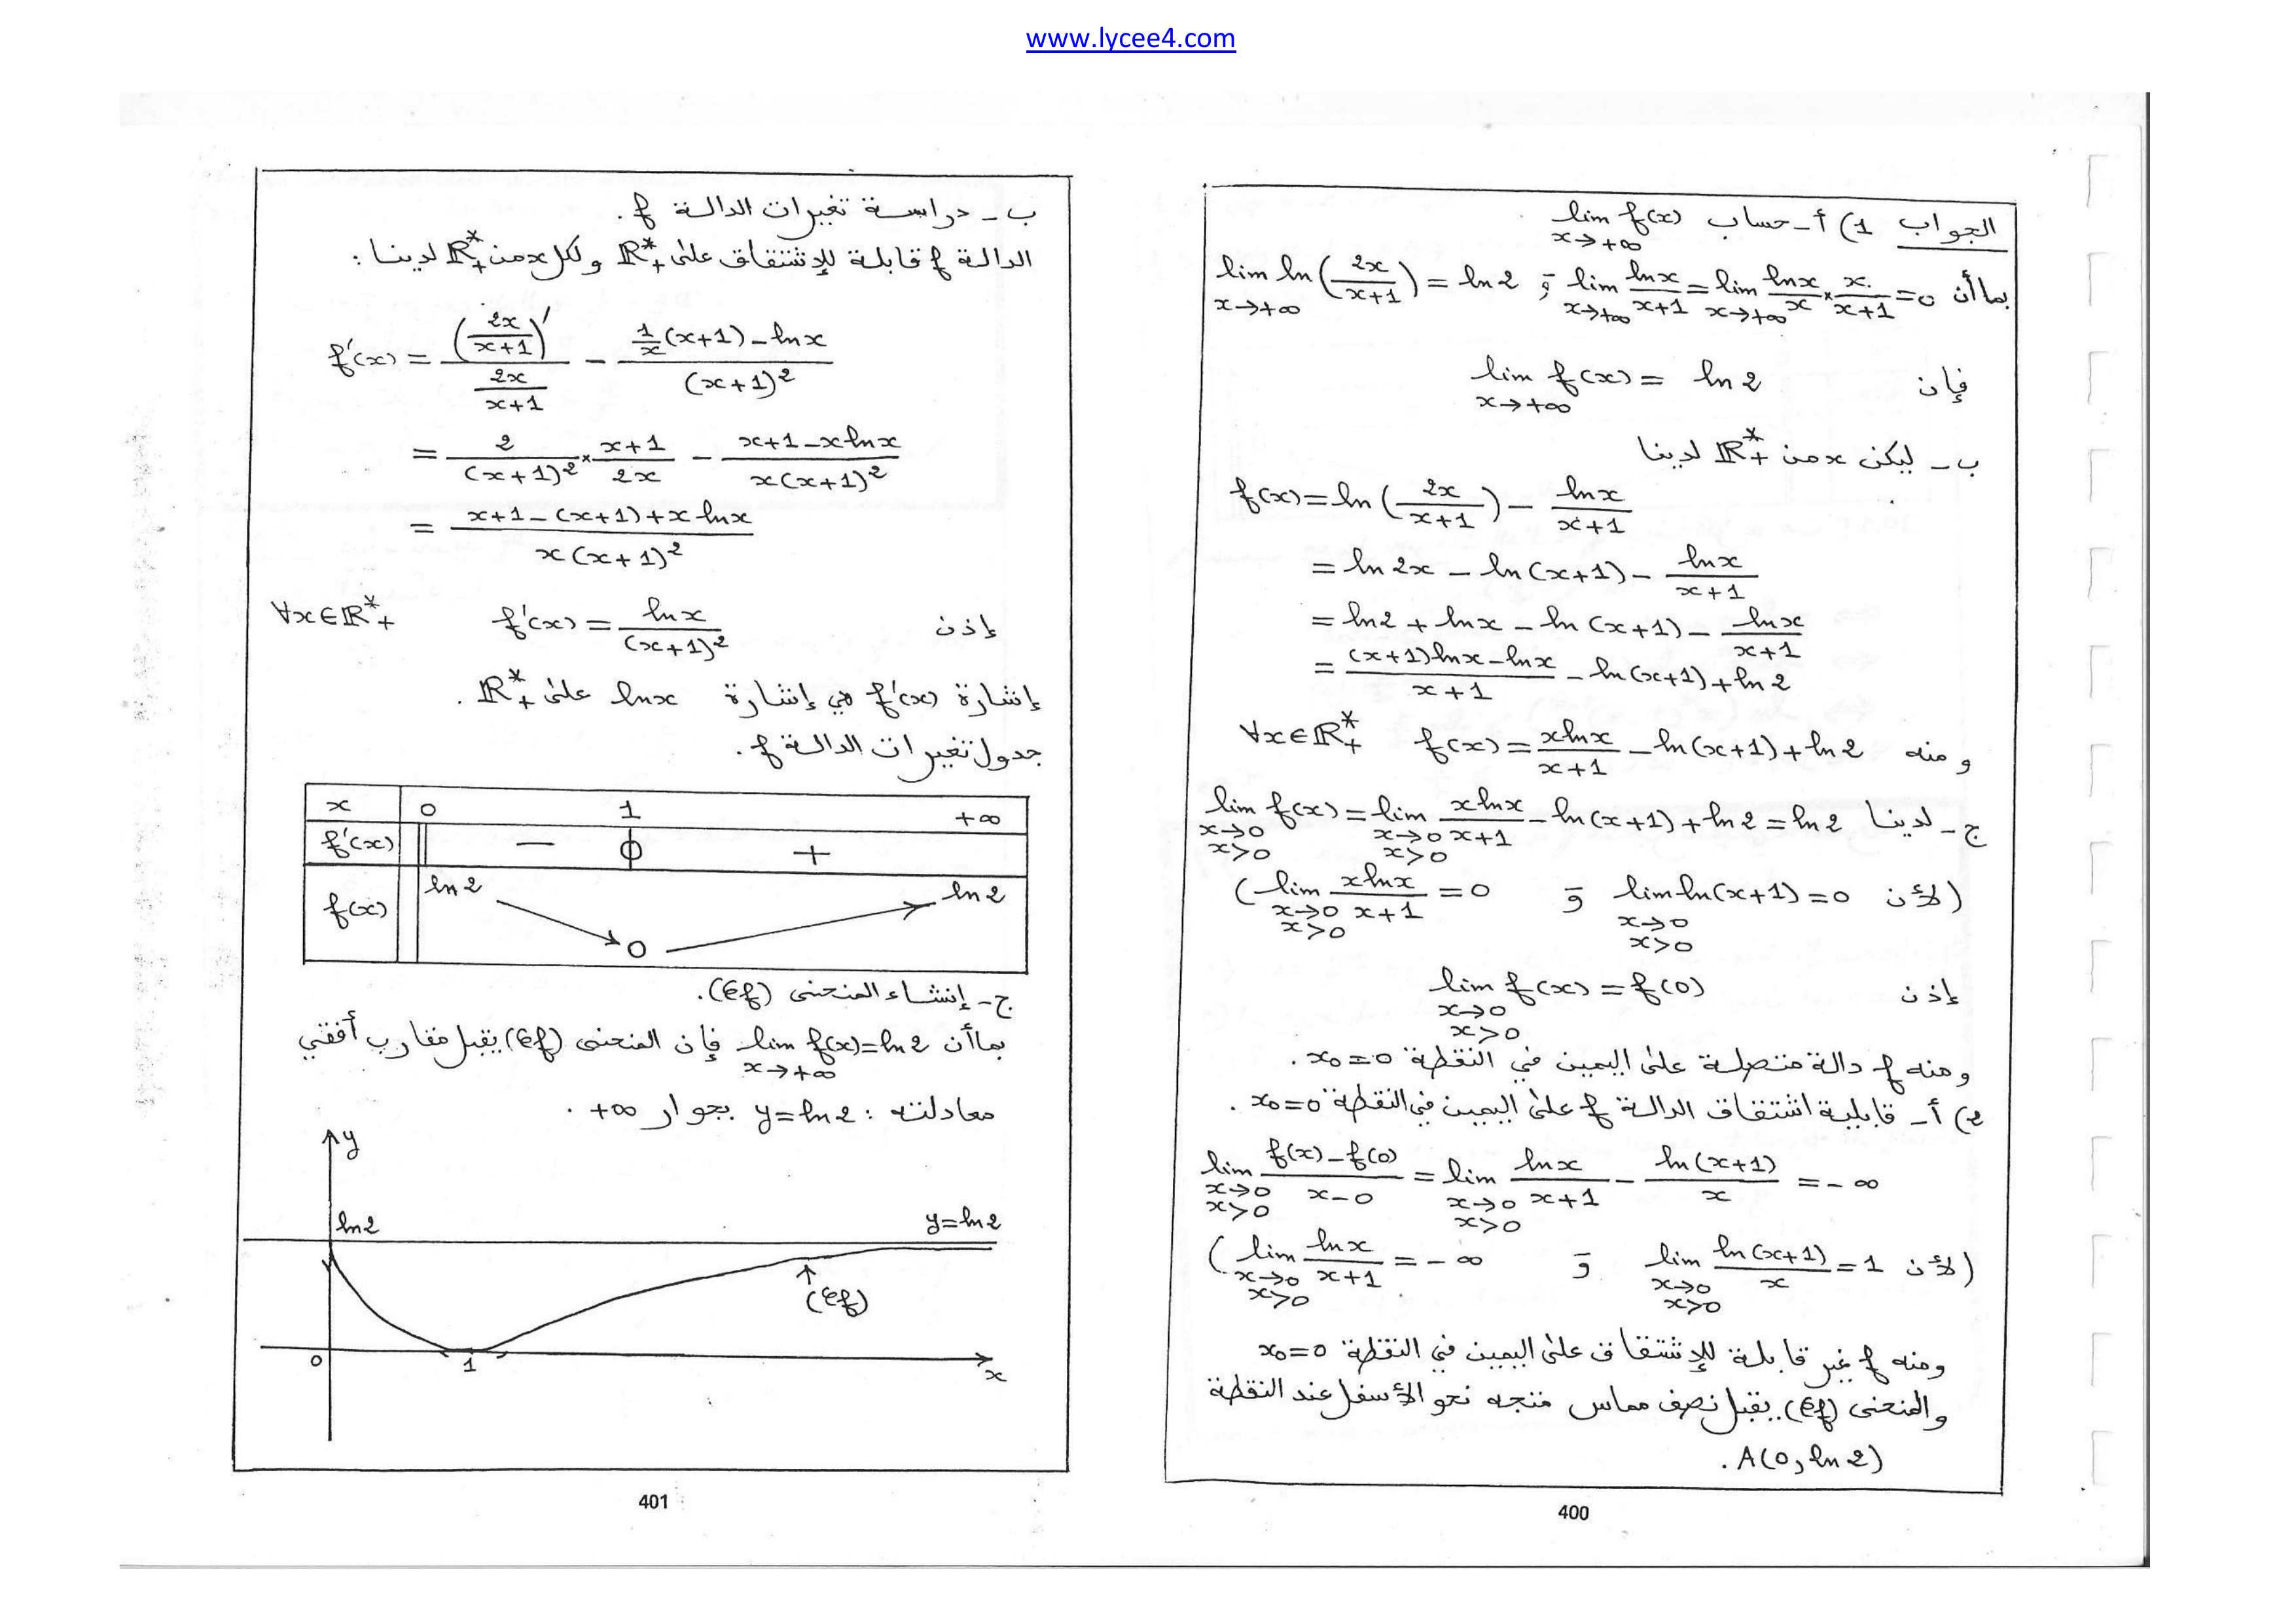 www.lycee4.com
الجواب 1) أ - حساب lim f(x)
x→+∞
بما أن lim lnx/(x+1) = lim lnx/x × x/(x+1) = 0 و lim ln(2x/(x+1)) = ln2
x→+∞ x→+∞ x→+∞
فإن lim f(x) = ln2
x→+∞
ب - ليكن x من ℝ*₊ لدينا
f(x) = ln(2x/(x+1)) - lnx/(x+1)
= ln2x - ln(x+1) - lnx/(x+1)
= ln2 + lnx - ln(x+1) - lnx/(x+1)
= ((x+1)lnx - lnx)/(x+1) - ln(x+1) + ln2
ومنه f(x) = xlnx/(x+1) - ln(x+1) + ln2 ∀x∈ℝ*₊
ج - لدينا lim f(x) = lim xlnx/(x+1) - ln(x+1) + ln2 = ln2
x→0 x→0
x>0 x>0
(لأن lim ln(x+1) = 0 و lim xlnx/(x+1) = 0)
x→0 x→0
x>0 x>0
إذن lim f(x) = f(0)
x→0
x>0
ومنه f دالة متصلة على اليمين في النقطة x₀=0.
2) أ - قابلية اشتقاق الدالة f على اليمين في النقطة x₀=0.
lim (f(x)-f(0))/(x-0) = lim lnx/(x+1) - ln(x+1)/x = -∞
x→0 x→0
x>0 x>0
(لأن lim ln(x+1)/x = 1 و lim lnx/(x+1) = -∞)
x→0 x→0
x>0 x>0
ومنه f غير قابلة للإشتقاق على اليمين في النقطة x₀=0
والمنحنى (𝒞f) يقبل نصف مماس متجه نحو الأسفل عند النقطة
A(0, ln2).
400
ب - دراسة تغيرات الدالة f.
الدالة f قابلة للإشتقاق على ℝ*₊ ولكل x من ℝ*₊ لدينا:
f'(x) = (2x/(x+1))'/(2x/(x+1)) - (1/x (x+1) - lnx)/(x+1)²
= 2/(x+1)² × (x+1)/2x - (x+1-xlnx)/(x(x+1)²)
= (x+1-(x+1)+x lnx)/(x(x+1)²)
إذن f'(x) = lnx/(x+1)² ∀x∈ℝ*₊
إشارة f'(x) هي إشارة lnx على ℝ*₊.
جدول تغيرات الدالة f.
x 0 1 +∞
f'(x) − 0 +
f(x) ln2 0 ln2
ج - إنشاء المنحنى (𝒞f).
بما أن lim f(x) = ln2 فإن المنحنى (𝒞f) يقبل مقارب أفقي
x→+∞
معادلته: y=ln2 بجوار +∞.
y
ln2 y=ln2
(𝒞f)
0 1 x
401